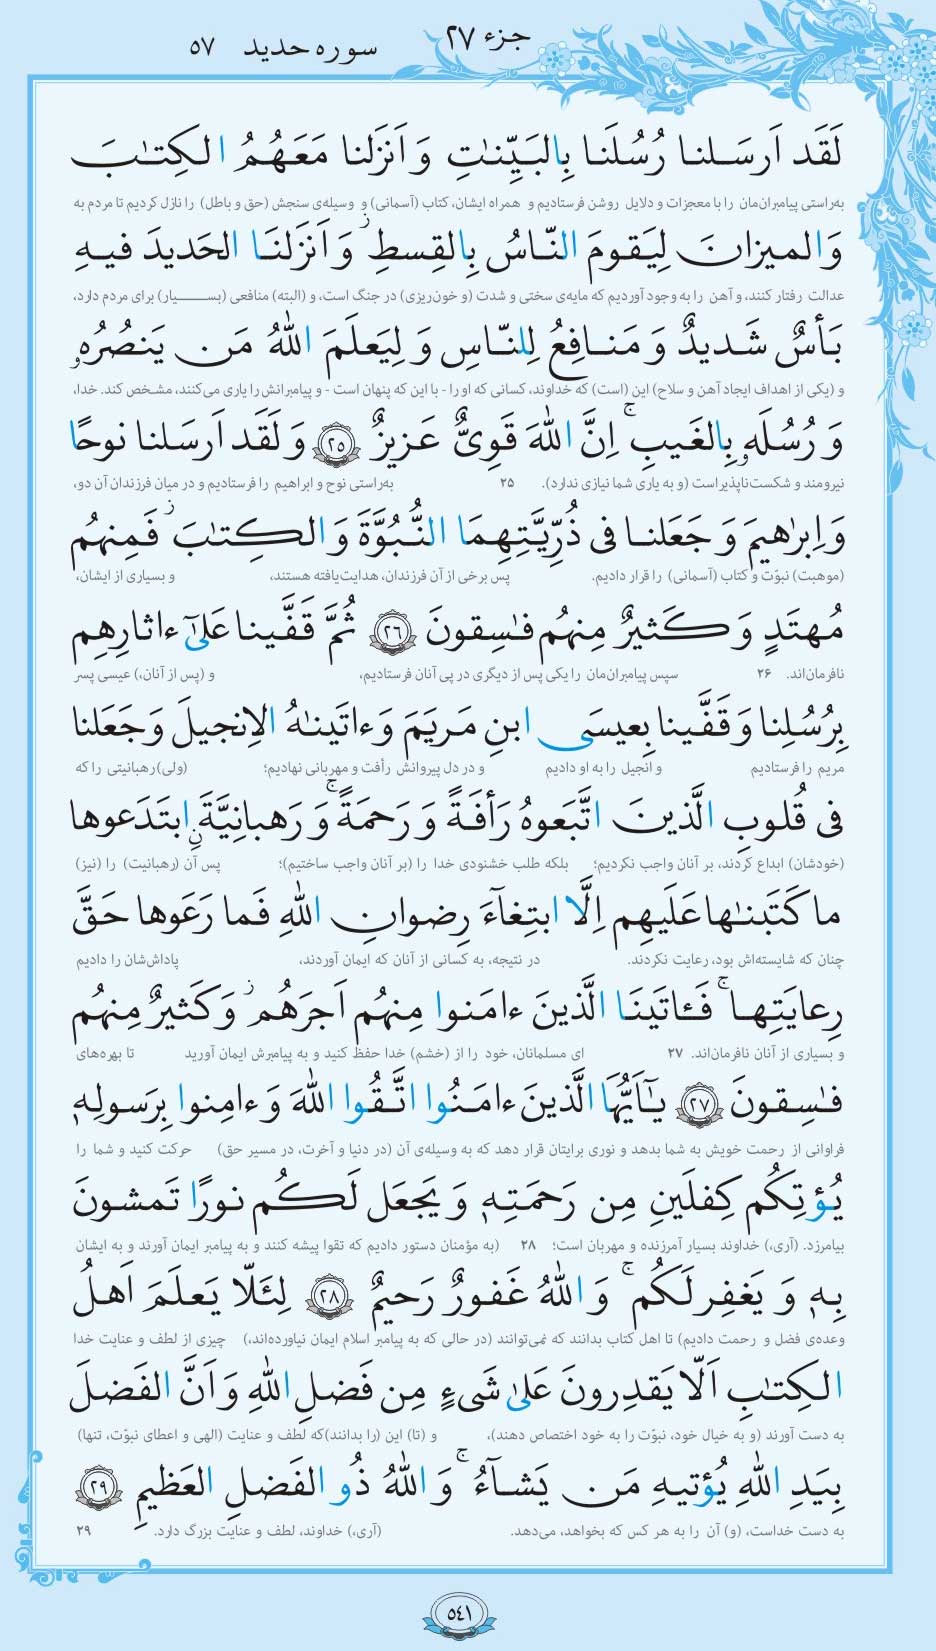 جزء ۲۷
سوره حدید ۵۷
لَقَد اَرسَـلنا رُسُلَنا بِالبَیِّنـٰتِ وَ اَنزَلنا مَعَهُمُ الـکِتـٰبَ
به‌راستی پیامبران‌مان را با معجزات و دلایل روشن فرستادیم و همراه ایشان، کتاب (آسمانی) و وسیله‌ی سنجش (حق و باطل) را نازل کردیم تا مردم به
وَ المیزانَ لِیَقومَ النّاسُ بِالقِسطِ ۖ وَ اَنزَلنَا الحَدیدَ فیـهِ
عدالت رفتار کنند، و آهن را به وجود آوردیم که مایه‌ی سختی و شدت (و خون‌ریزی) در جنگ است، و (البته) منافعی (بسـیار) برای مردم دارد،
بَـأسٌ شَدیدٌ وَ مَنـافِعُ لِلنّـاسِ وَ لِیَعلَمَ اللّٰهُ مَن یَنصُرُهٗ
و (یکی از اهداف ایجاد آهن و سلاح) این (است) که خداوند، کسانی که او را - با این که پنهان است - و پیامبرانش را یاری می‌کنند، مشخص کند. خدا،
وَ رُسُلَهٗ بِالغَیبِ ۚ اِنَّ اللّٰهَ قَویٌّ عَزیزٌ ﴿۲۵﴾ وَ لَقَد اَرسَلنا نوحًا
نیرومند و شکست‌ناپذیر است (و به یاری شما نیازی ندارد). ۲۵ به‌راستی نوح و ابراهیم را فرستادیم و در میان فرزندان آن دو،
وَ اِبرٰهیمَ وَ جَعَلنـا فی ذُرِّیَّتِهِمَا النُّبُوَّةَ وَ الـکِتـٰبَ ۖ فَمِنهُم
(موهبت) نبوّت و کتاب (آسمانی) را قرار دادیم. پس برخی از آن فرزندان، هدایت‌یافته هستند، و بسیاری از ایشان،
مُهتَدٍ وَ کَثیرٌ مِنهُم فـٰسِقونَ ﴿۲۶﴾ ثُمَّ قَفَّینا عَلیٰٓ ءاثارِهِم
نافرمان‌اند. ۲۶ سپس پیامبران‌مان را یکی پس از دیگری در پی آنان فرستادیم، و (پس از آنان،) عیسی پسر
بِرُسُلِنا وَ قَفَّینا بِعیسَی ابنِ مَریَمَ وَ ءاتَینـٰهُ الاِنجیلَ وَ جَعَلنا
مریم را فرستادیم و انجیل را به او دادیم و در دل پیروانش رأفت و مهربانی نهادیم؛ (ولی) رهبانیتی را که
فی قُلوبِ الَّذینَ اتَّبَعوهُ رَأفَةً وَ رَحمَةً ۚ وَ رَهبانِیَّةَنِ ابتَدَعوها
(خودشان) ابداع کردند، بر آنان واجب نکردیم؛ بلکه طلب خشنودی خدا را (بر آنان واجب ساختیم)؛ پس آن (رهبانیت) را (نیز)
ما کَتَبنـٰها عَلَیهِم اِلَّا ابتِغآءَ رِضوانِ اللّٰهِ فَما رَعَوها حَقَّ
چنان که شایسته‌اش بود، رعایت نکردند. در نتیجه، به کسانی از آنان که ایمان آوردند، پاداش‌شان را دادیم
رِعایَتِهـا ۚ فَـٔاتَینَا الَّذینَ ءامَنوا مِنهُم اَجرَهُم ۖ وَ کَثیرٌ مِنهُم
و بسیاری از آنان نافرمان‌اند. ۲۷ ای مسلمانان، خود را از (خشم) خدا حفظ کنید و به پیامبرش ایمان آورید تا بهره‌های
فـٰسِقونَ ﴿۲۷﴾ یـٰٓاَیُّهَا الَّذینَ ءامَنُوا اتَّقُوا اللّٰهَ وَ ءامِنوا بِرَسولِهٖ
فراوانی از رحمت خویش به شما بدهد و نوری برایتان قرار دهد که به وسیله‌ی آن (در دنیا و آخرت، در مسیر حق) حرکت کنید و شما را
یُؤتِکُم کِفلَینِ مِن رَحمَتِـهٖ وَ یَجعَل لَـکُم نورًا تَمشونَ
بیامرزد. (آری،) خداوند بسیار آمرزنده و مهربان است؛ ۲۸ (به مؤمنان دستور دادیم که تقوا پیشه کنند و به پیامبر ایمان آورند و به ایشان
بِهٖ وَ یَغفِر لَـکُم ۚ وَ اللّٰهُ غَفورٌ رَحیمٌ ﴿۲۸﴾ لِئَلّا یَعلَمَ اَهلُ
وعده‌ی فضل و رحمت دادیم) تا اهل کتاب بدانند که نمی‌توانند (در حالی که به پیامبر اسلام ایمان نیاورده‌اند،) چیزی از لطف و عنایت خدا
الـکِتـٰبِ اَلّا یَقدِرونَ عَلیٰ شَیءٍ مِن فَضلِ اللّٰهِ وَ اَنَّ الفَضلَ
به دست آورند (و به خیال خود، نبوّت را به خود اختصاص دهند)، و (تا) این (را بدانند) که لطف و عنایت (الهی و اعطای نبوّت، تنها)
بِیَدِ اللّٰهِ یُؤتیهِ مَن یَشـآءُ ۚ وَ اللّٰهُ ذُو الفَضلِ العَظیمِ ﴿۲۹﴾
به دست خداست، (و) آن را به هر کس که بخواهد، می‌دهد. (آری،) خداوند، لطف و عنایت بزرگ دارد. ۲۹
۵۴۱